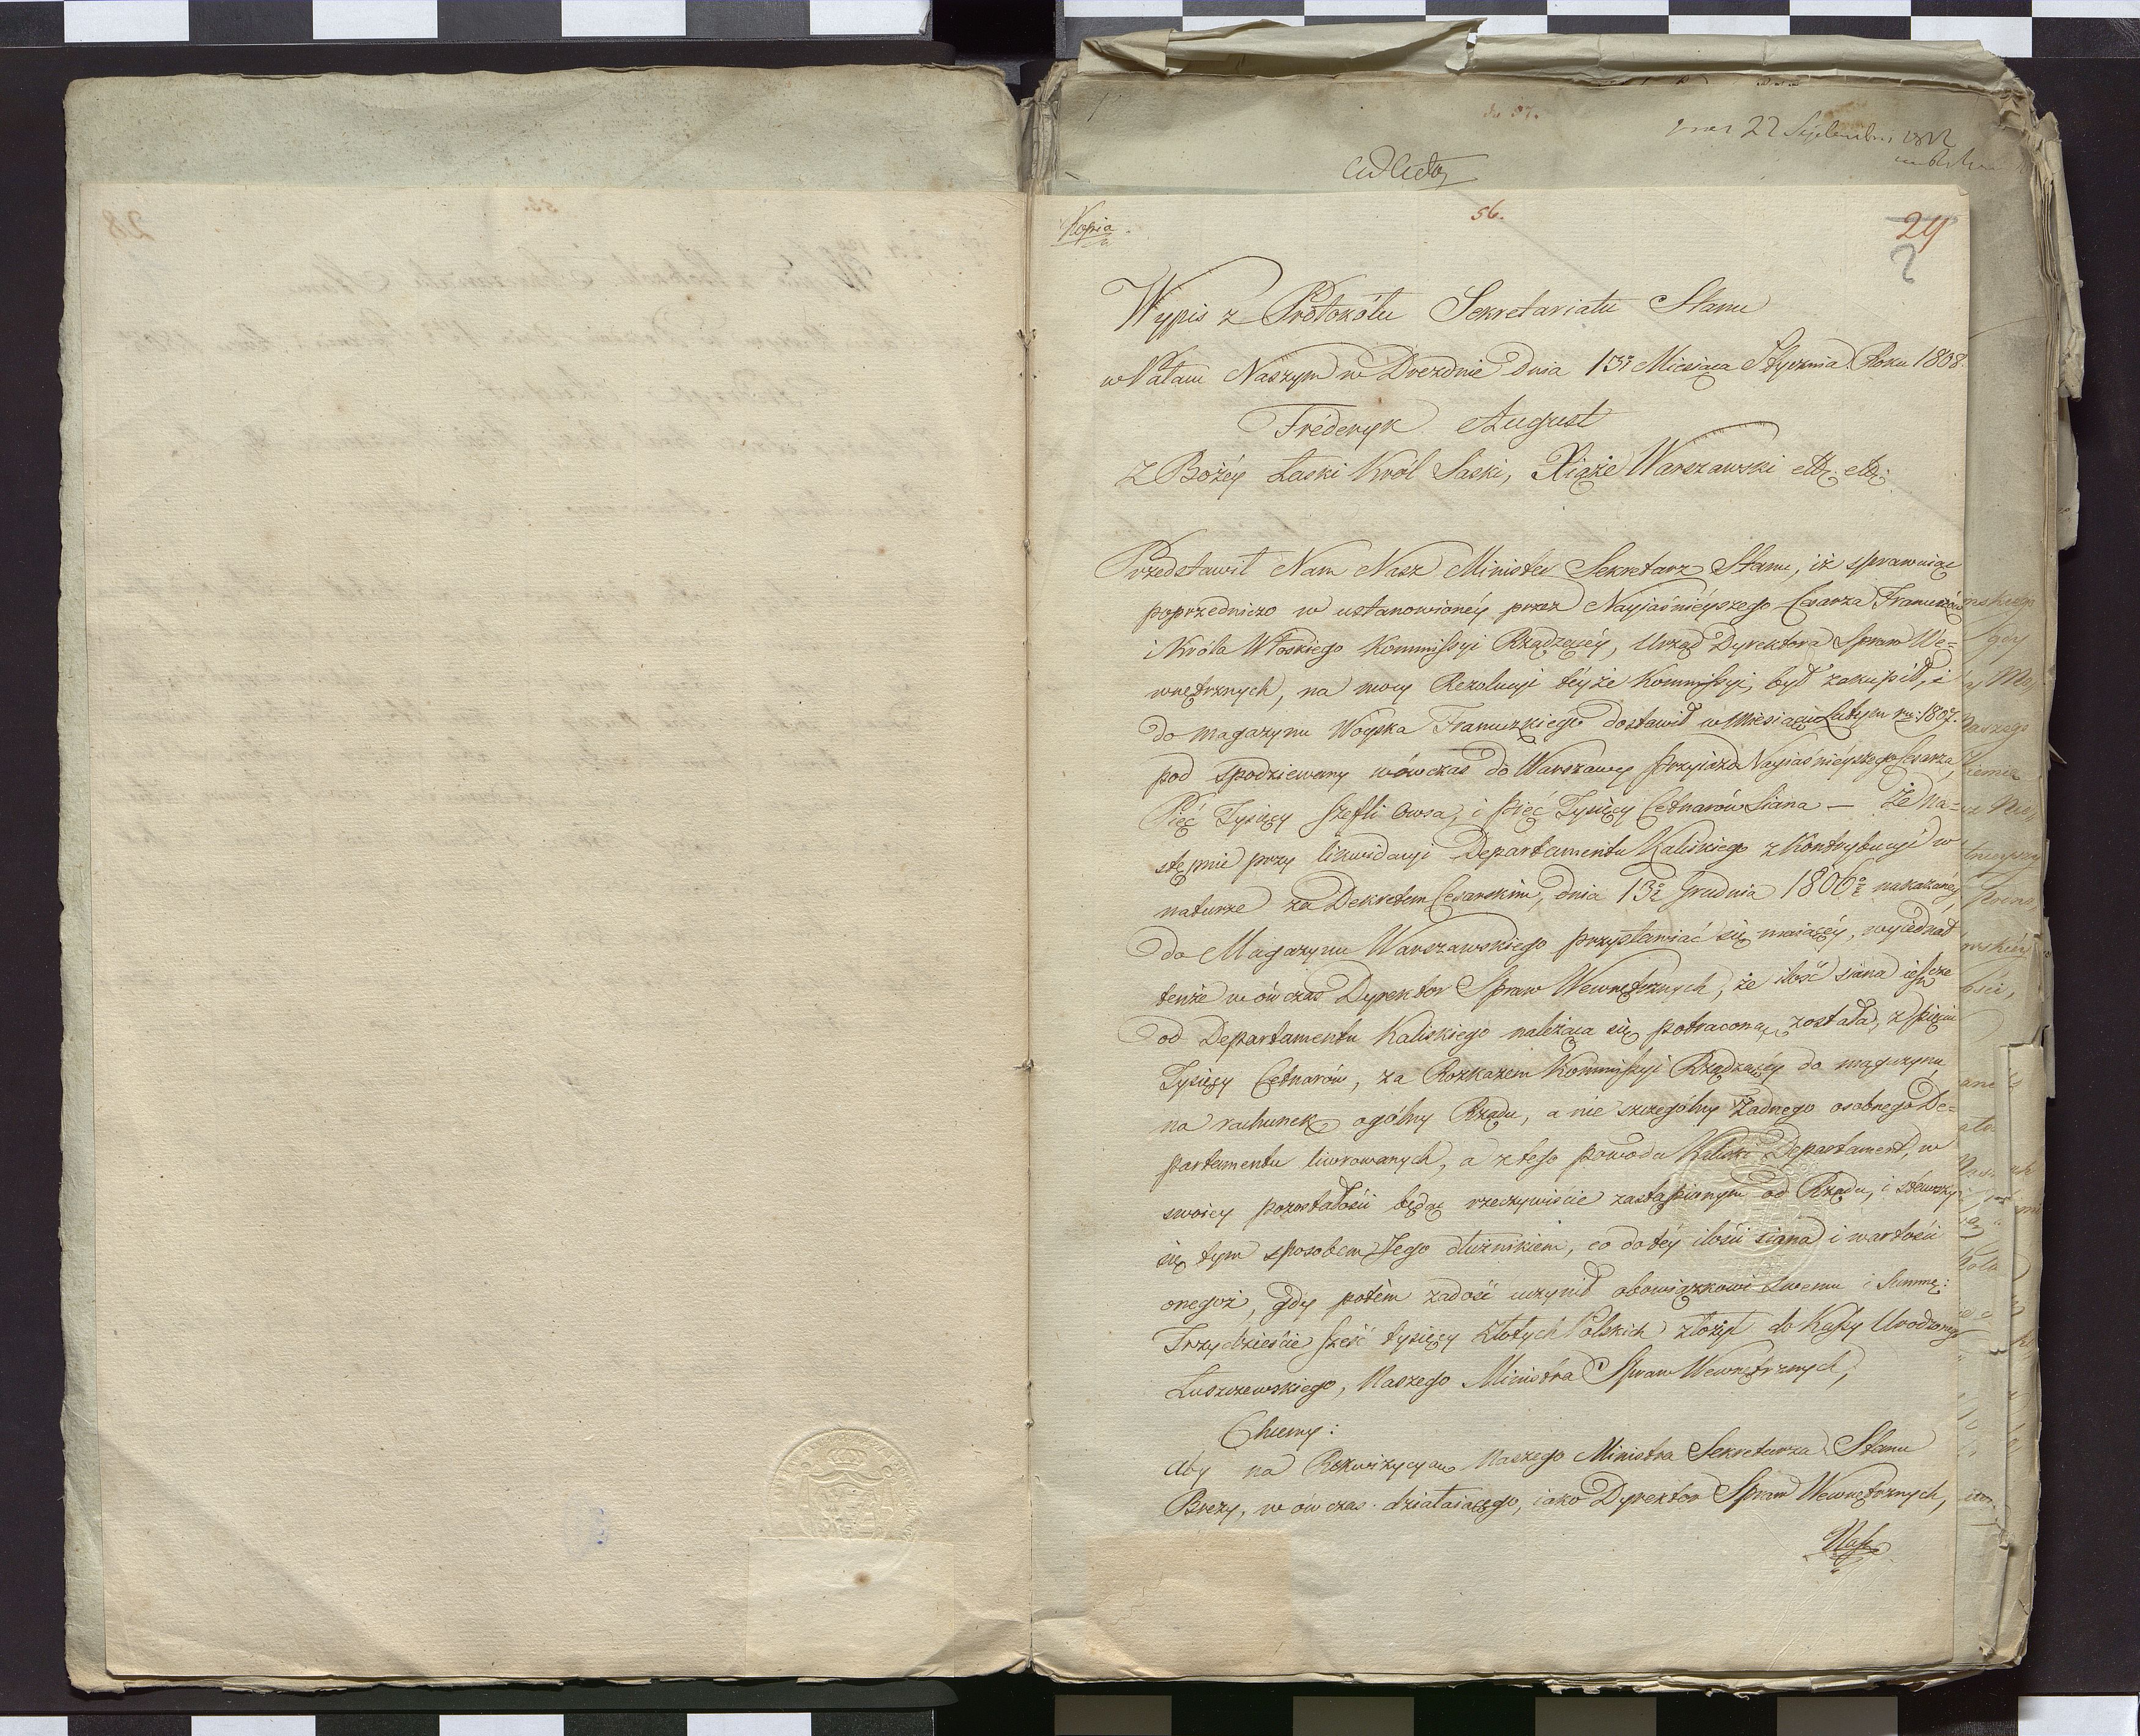 ad Acta
56.
Kopia
29
2
Wypis z Protokółu Sekretariatu Stanu
w Pałacu Naszym w Dreznie Dnia 13º Miesiąca Stycznia Roku 1808.
Fréderyk August
Z Bożéy Łaski Król Saski, Xiąże Warszawski etc. etc.
Przedstawił Nam Nasz Minister Sekretarz Stanu, iż sprawuiąc
poprzedniczo w ustanowionéy przez Nayiaśnieyszego Cesarza Francuzów
i Króla Włoskiego Kommissyi Rządzącéy, Urząd Dyrektora Spraw We=
wnętrznych, na mocy Rezolucyi téyże Kommissyi, był zakupił, i
do magazynu Woyska Francuzkiego dostawił w Miesiącu Lutym r: 1807.
pod spodziewany wówczas do Warszawy przyiazd Nayiaśnieyszego Cesarza,
Pięć Tysięcy szefli Owsa, i pięć Tysięcy Cetnarów Siana — Że na=
stępnie przy likwidacyi Departamentu Kaliskiego z Kontrybucyi w
naturze za Dekretem Cesarskim, dnia 13º Grudnia 1806º nakazanéy,
do Magazynu Warszawskiego przystawiać się maiącéy, wyiednał
tenże wówczas Dyrektor Spraw Wewnętrznych, że ilość siana ieszcze
od Departamentu Kaliskiego należąca się potrąconą została, z pięciu
Tysięcy Cetnarów, za Rozkazem Kommissyi Rządzącéy do magazynu,
na rachunek ogólny Rządu, a nie szczególny żadnego osobnego De=
partamentu liwrowanych, a z tego powodu Kaliski Departament, w
swoiey pozostałości będąc rzeczywiście zastąpionym od Rządu, i stawszy
się tym sposobem Jego dłużnikiem, co do téy ilości siana i wartości
onegoż, gdy potém zadość uczynił obowiązkowi swemu i Summę:
Trzydzieście sześć tysięcy Złotych Polskich złożył do Kassy Urodzonego
Łuszczewskiego, Naszego Ministra Spraw Wewnętrznych,
Chcemy:
Aby na Rekwizycyą Naszego Ministra Sekretarza Stanu
Brezy, wówczas działaiącego, iako Dyrektor Spraw Wewnętrznych,
Nasz